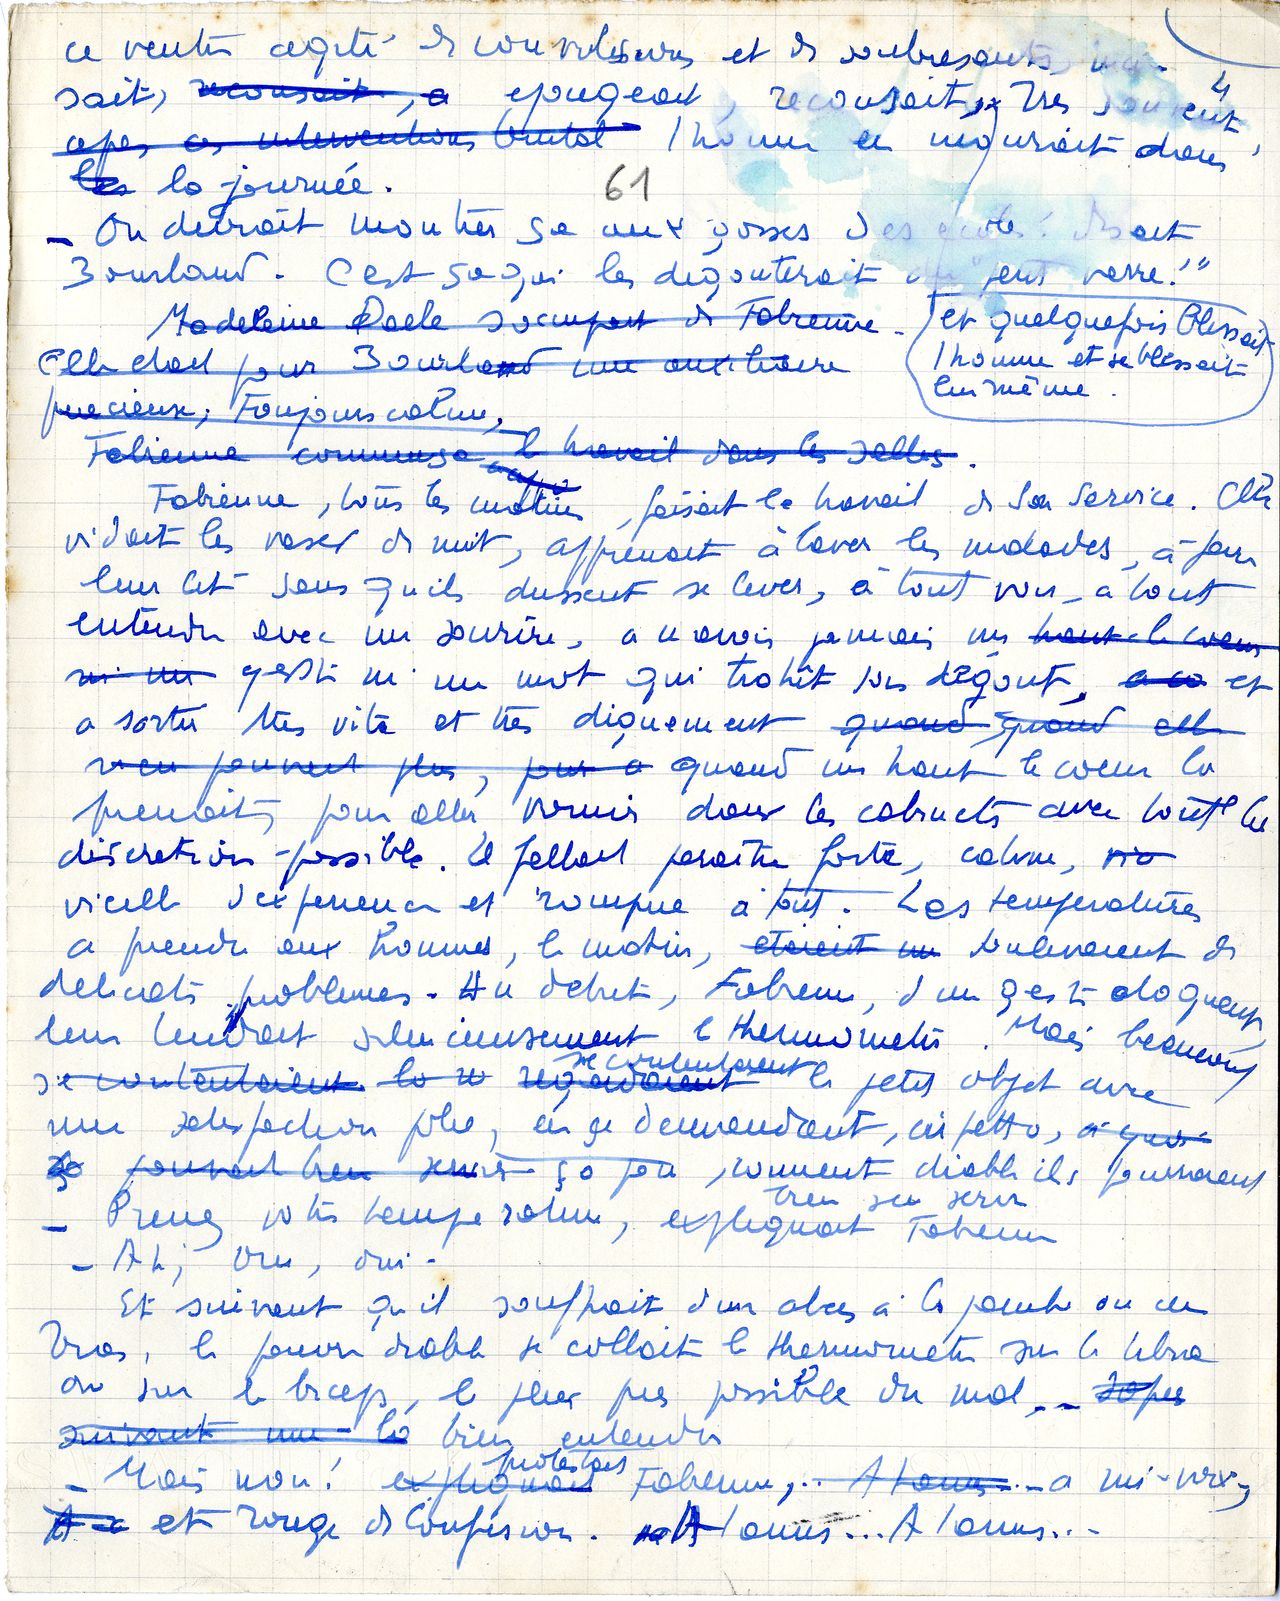 ce ventre agité de convulsions et de soubresauts, inci- 4
sait, recousait, a épongeait, recousait, Très souvent
après ces interventions brutal l'homme en mourait dans
les la journée. 61
- On devrait montrer ça aux gosses des écoles! disait
Bourland. C'est ça qui les dégouterait du "petit verre!"
Madeleine Daele s'occupait de Fabienne.
et quelquefois blessait
l'homme et se blessait
lui même.
Elle était pour Bourland une auxiliaire
précieuse, Toujours calme,
Fabienne commença le travail dans les salles.
Fabienne, tous les matins, faisait le travail de son service. Elle
vidait les vases de nuit, apprenait à laver les malades, à faire
leur lit sans qu'ils dussent se lever, à tout voir, à tout
entendre avec un sourire, à n'avoir jamais un haut-le-coeur
ni un geste ni un mot qui trahît son dégoût, et
a sortir très vite et très dignement quand quand elle
n'en pouvait plus, pour a quand un haut le coeur la
prenait, pour aller vomir dans les cabinets avec toute la
discrétion possible. Il fallait paraître forte, calme,
vieille d'expérience et rompue à tout. Les températures
a prendre aux hommes, le matin, étaient un soulevaient de
délicats problèmes. Au début, Fabienne, d'un geste éloquent,
leur tendait silencieusement le thermomètre. Mais beaucoup
se contentaient la regardaient se contentaient le petit objet avec
une satisfaction polie, en se demandant, in petto, à quoi
pouvait bien servir ça, comment diable ils pourraient
bien s'en servir
- Prenez votre température, expliquait Fabienne
- Ah, oui, oui.
Et suivant qu'il souffrait d'un abcès à la jambe ou au
bras, le pauvre diable se collait le thermomètre sur le tibia
ou sur le biceps, le plus près possible du mal,
suivant une la bien entendu
- Mais non! expliquait protestait Fabienne, A l'anus... a mi-voix,
et rouge de confusion. A l'anus... A l'anus...